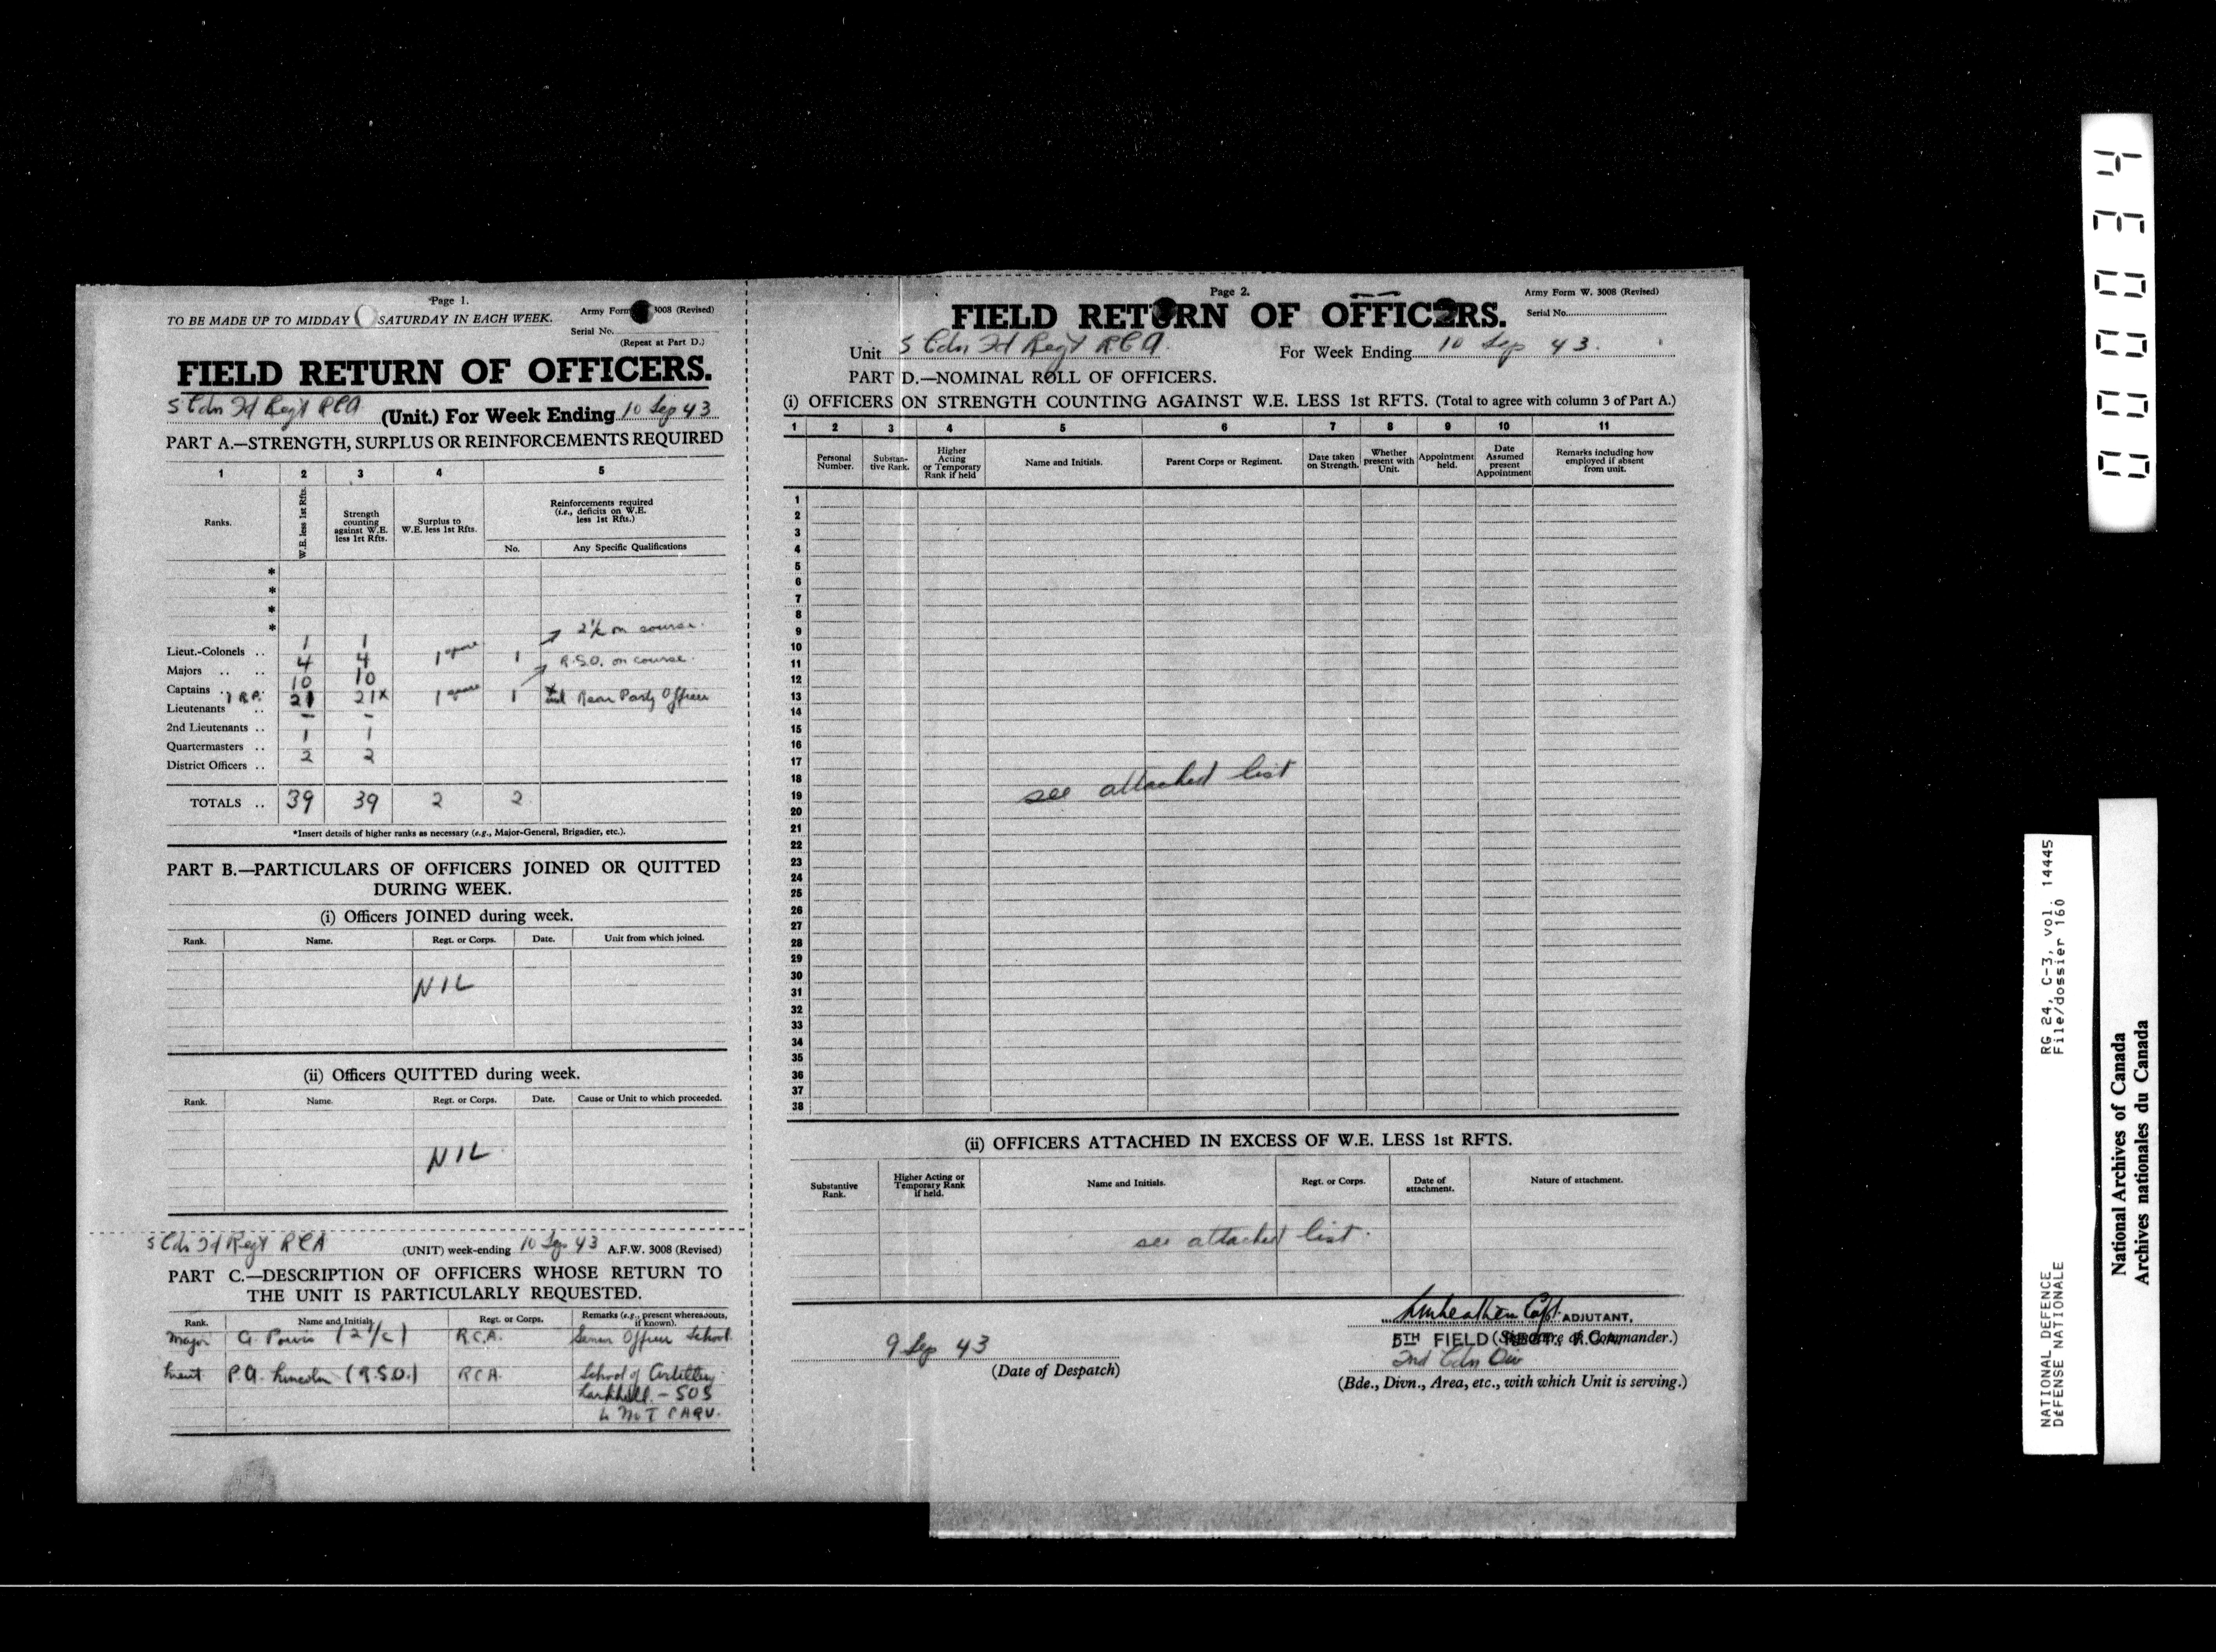 Page 1.
TO BE MADE UP TO MIDDAY SATURDAY IN EACH WEEK.
Army Form 3008 (Revised)
Serial No.
(Repeat at Part D.)
FIELD RETURN OF OFFICERS.
5 Cdn Fd Regt RCA (Unit.) For Week Ending 10 Sep 43
PART A.—STRENGTH, SURPLUS OR REINFORCEMENTS REQUIRED
1 2 3 4 5
Ranks.
W.E. less 1st Rfts.
Strength counting against W.E. less 1st Rfts.
Surplus to W.E. less 1st Rfts.
Reinforcements required (i.e., deficits on W.E. less 1st Rfts.)
No. Any Specific Qualifications
*
*
*
*
2 i/c on course.
Lieut.-Colonels .. 1 1
Majors .. .. 4 4 1 spare 1 R.S.O. on course.
Captains .. 10 10
Lieutenants .. 1 R.P. 21 21x 1 spare 1 x Rear Party Officer
2nd Lieutenants .. – –
Quartermasters .. 1 1
District Officers .. 2 2
TOTALS .. 39 39 2 2
*Insert details of higher ranks as necessary (e.g., Major-General, Brigadier, etc.).
PART B.—PARTICULARS OF OFFICERS JOINED OR QUITTED
DURING WEEK.
(i) Officers JOINED during week.
Rank. Name. Regt. or Corps. Date. Unit from which joined.
NIL
(ii) Officers QUITTED during week.
Rank. Name. Regt. or Corps. Date. Cause or Unit to which proceeded.
NIL
5 Cdn Fd Regt RCA (UNIT) week-ending 10 Sep 43 A.F.W. 3008 (Revised)
PART C.—DESCRIPTION OF OFFICERS WHOSE RETURN TO
THE UNIT IS PARTICULARLY REQUESTED.
Rank. Name and Initials. Regt. or Corps. Remarks (e.g., present whereabouts, if known).
Major G. Powis (2 i/c) R.C.A. Senior Officer School.
Lieut P.A. Lincoln (R.S.O.) RCA. School of Artillery
Larkhill - SOS
to No 1 CARU.
Page 2.
Army Form W. 3008 (Revised)
FIELD RETURN OF OFFICERS.
Serial No.
Unit 5 Cdn Fd Regt RCA. For Week Ending 10 Sep 43.
PART D.—NOMINAL ROLL OF OFFICERS.
(i) OFFICERS ON STRENGTH COUNTING AGAINST W.E. LESS 1st RFTS. (Total to agree with column 3 of Part A.)
1 2 3 4 5 6 7 8 9 10 11
Personal Number.
Substan-tive Rank.
Higher Acting or Temporary Rank if held
Name and Initials.
Parent Corps or Regiment.
Date taken on Strength.
Whether present with Unit.
Appointment held.
Date Assumed present Appointment
Remarks including how employed if absent from unit.
1
2
3
4
5
6
7
8
9
10
11
12
13
14
15
16
17
18
see attached list
19
20
21
22
23
24
25
26
27
28
29
30
31
32
33
34
35
36
37
38
(ii) OFFICERS ATTACHED IN EXCESS OF W.E. LESS 1st RFTS.
Substantive Rank.
Higher Acting or Temporary Rank if held.
Name and Initials.
Regt. or Corps.
Date of attachment.
Nature of attachment.
see attached list.
Capt. ADJUTANT,
5TH FIELD REGT., R.C.A.
(Signature of Commander.)
9 Sep 43
(Date of Despatch)
2nd Cdn Div
(Bde., Divn., Area, etc., with which Unit is serving.)
00034
RG 24, C-3, vol. 14445
File/dossier 160
NATIONAL DEFENCE
DÉFENSE NATIONALE
National Archives of Canada
Archives nationales du Canada